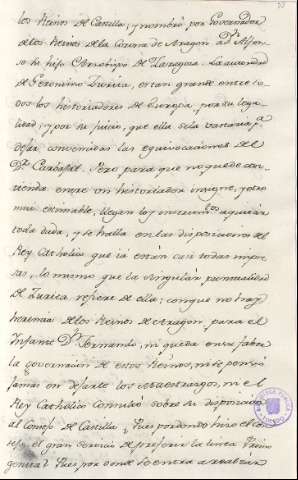 los Reinos de Castilla, y nombró por Governador
de los Reinos de la Corona de Aragon a Dn. Alfon-
so su hijo Arzobispo de Zaragoza. La autoridad
de Geronimo Zurita, es tan grande entre to-
dos los historiadores de Europa, por su lega-
lidad, y por su juicio, que ella sola vastaria pa.
dejar convencidas las equivocaciones del
Dr. Carbajal. Pero para que no quede con-
tienda entre un historiador insigne, y otro
mui estimable, llegan los instrumtos. a quitar
toda duda, y se halla en las disposiciones del
Rey Catholico que ia están casi todas impre-
sas, lo mismo que la singular puntualidad
de Zurita refiere de ello; con que no hay
herencia de los Reinos de Aragon para el
Infante Dn. Fernando, ni queda en su favor la
governacion de estos Reinos, ni se pensó
jamas en dejarle los Maestrazgos, ni el
Rey Catholico consultó sobre su disposicion
al Consejo de Castilla. Pues por donde hizo el Con-
sejo el gran servicio de preferir la linea Primo
genita? Pues por donde